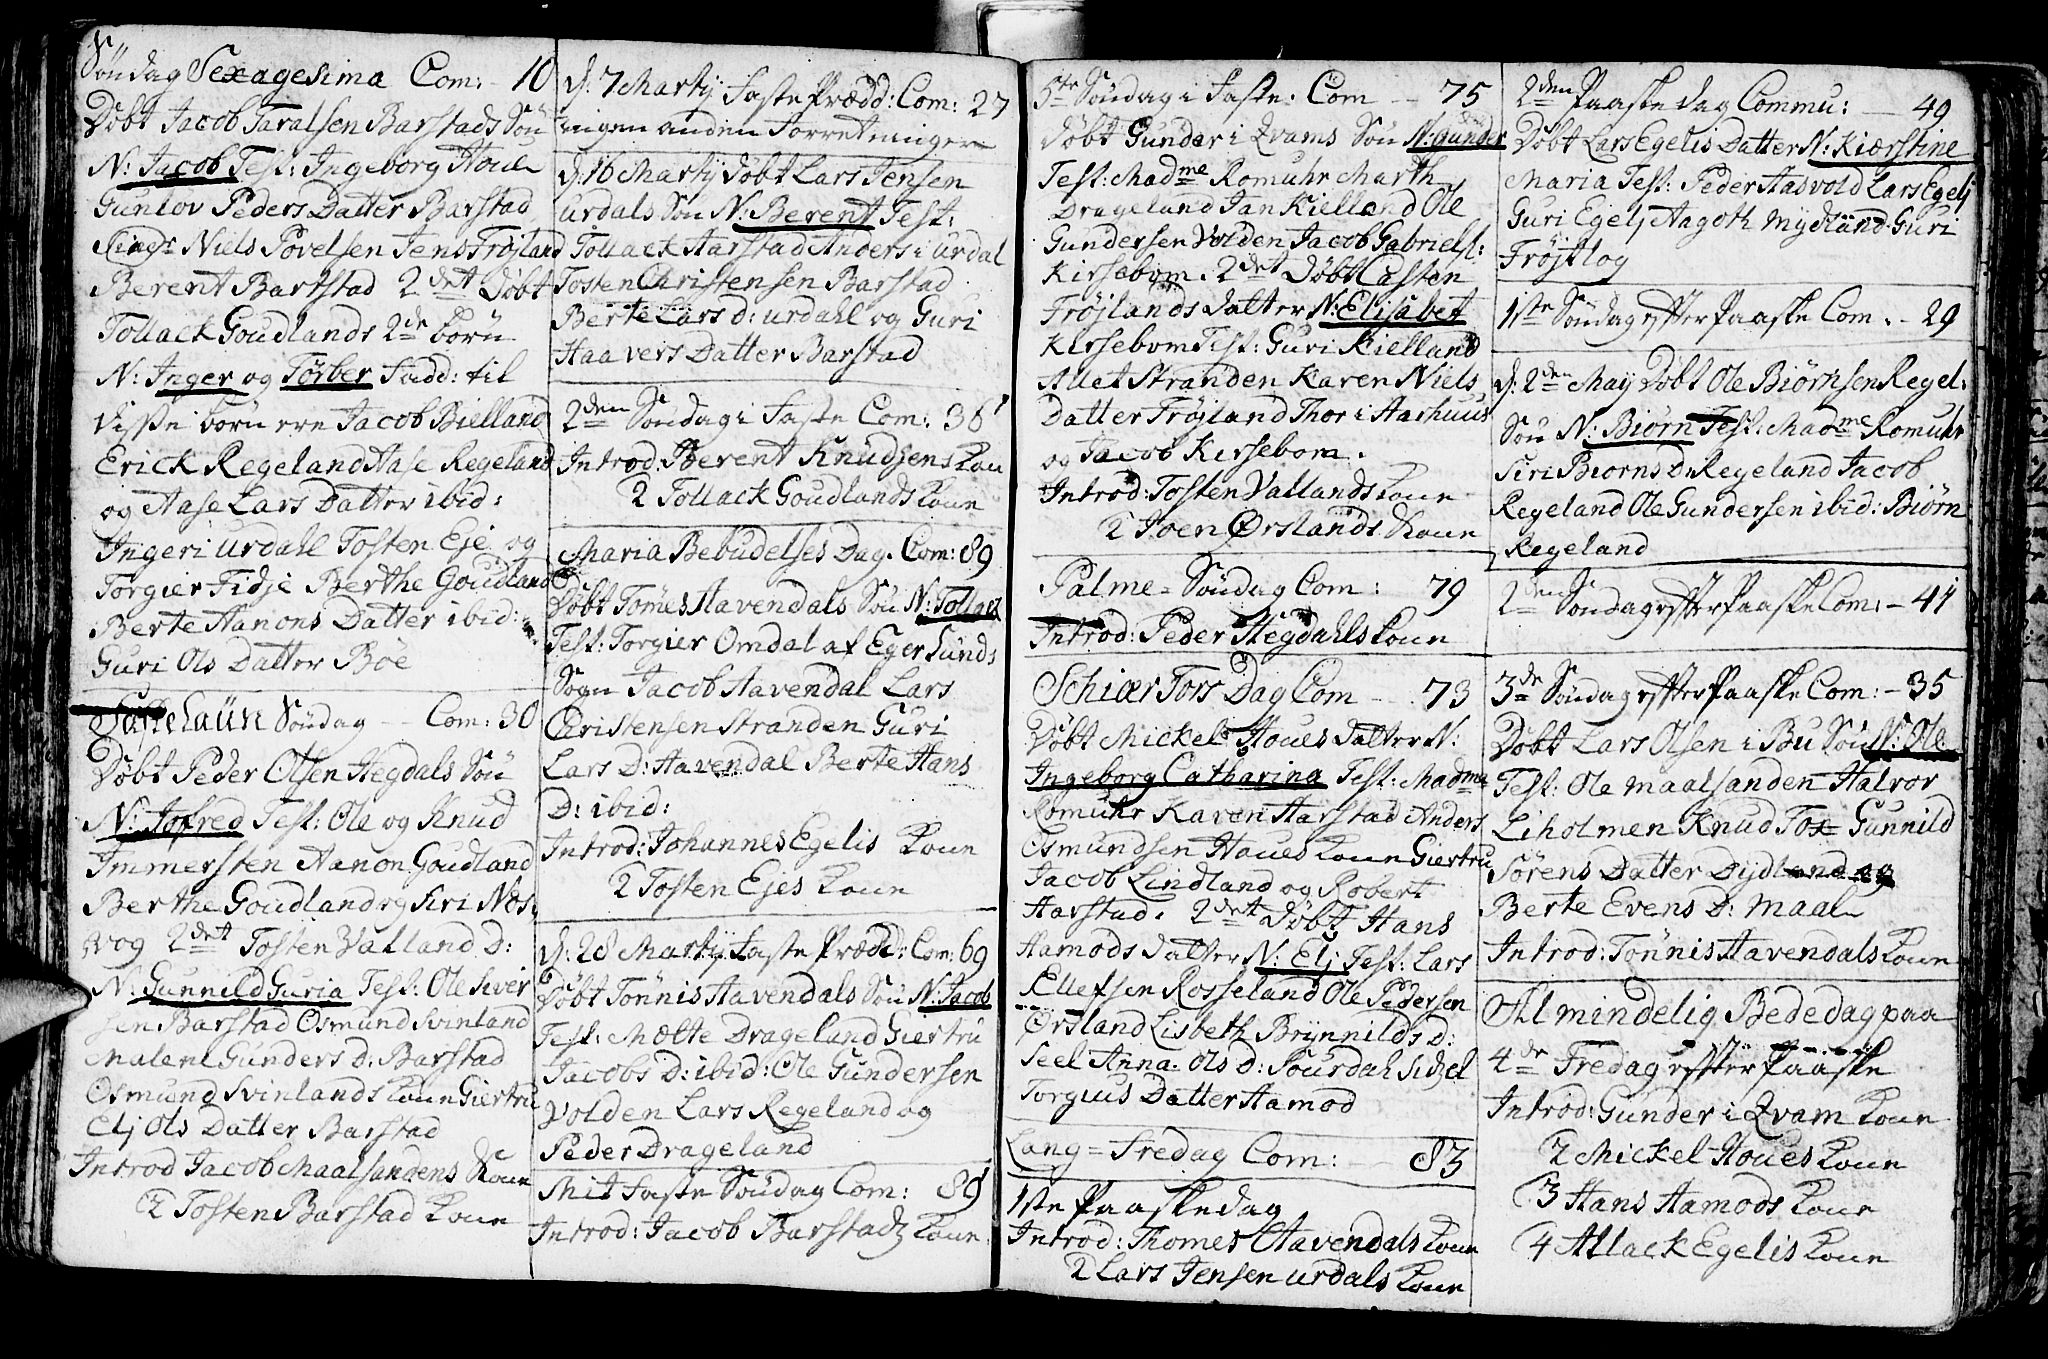 Söndag Sexagesima Com: - 10
Döbt Jacob Taralsen Barstads Sön
N: Jacob Test: Ingeborg Houe
Gunlov Peders Datter Barstad
Niels Povelsen Jens Fröjland
Berent Barstad 2det Döbt
Tollack Goudlands 2de börn
N: Inger og Torber fadd: til
disse börn ere Jacob Bielland
Erick Regeland Aase Regeland
og Aase Lars Datter ibid:
Inger i urdahl Tosten Eje og
Torgier Fidje Berthe Goudland
Berte Aanons Datter ibid:
Guri Ols Datter Böe
Fastelaün Söndag -- Com: 30
Döbt Peder Olsen Hegdals Sön
N: Jofred Test: Ole og Knud
Immersten Aanon Goudland
Berthe Goudland og Siri Nös
vog 2det Tosten Vatland D:
N: Gunnild Guria Test: Ole Siver
sen Barstad Osmund Svinland
Malene Gunders D: Barstad
Osmund Svinlands Kone Giertru
Elj Ols Datter Barstad
Introd Jacob Maalsandens Kone
2 Tosten Barstad Kone
d: 7 Martij Faste Prædd: Com: 27
ingen anden Forretninger
d: 16 Martij döbt Lars Jensen
urdals Sön N: Berent Test:
Tollack Aarstad Anders i urdal
Tosten Christensen Barstad
Berte Lars D: urdahl og Guri
Haavers Datter Barstad
2den Söndag i Faste Com: 36
Introd Berent Knudsens Kone
2 Tollack Goudlands Kone
Maria Bebudelses Dag. Com: 89
Döbt Tomes Aavendals Sön N: Tollaek
Test: Torgier Omdal af Egersunds
Sogn Jacob Aavendal Lars
Christensen Stranden Guri
Lars D: Aavendal Berte Hans
D: ibid:
Introd: Johannes Egelis Kone
2 Tosten Ejes Kone
d: 28 Martij Faste Prædd: Com: 69
Döbt Tönnis Aavendals Sön N: Jacob
Test: Mætte Drageland Giertru
Jacobs D: ibid: Ole Gundersen
Volden Lars Regeland og
Peder Drageland
Mit Faste Söndag Com: 89
Introd: Jacob Barstads Kone
5te Söndag i Faste. Com -- 75
döbt Gunder i Qvams Sön N: Gunder
Test: Madme Romuhr Marth
Drageland Jan Kielland Ole
Gundersen Volden Jacob Gabriels:
Kirsebom. 2det Döbt Casten
Fröjlands datter N: Elisabet
Kirsebom Test: Guri Kielland
Allet Stranden Karen Niels
Datter Fröjland Thor i Aarhuus
og Jacob Kirsebom.
Introd: Tosten Vatlands Kone
2 Joen Ørslands Kone
Palme = Söndag Com: 79
Introd: Peder Hegdahls Kone
Schiær Tors Dag Com -- 73
Döbt Mickel Houes datter N:
Ingeborg Catharina Test: Madme
Romuhr Karen Aarstad Anders
Osmundsen Houes Kone Giertru
Jacob Lindland og Robert
Aarstad. 2det Döbt Hans
Aamods datter N: Elj Test: Lars
Ellefsen Rosseland Ole Pedersen
Ørsland Lisbeth Brynnilds D:
Seel Anna Ols D: Sourdal Sidzel
Torgius Datter Aamod
Lang = Fredag Com: -- 83
1ste Paaskedag
Introd: Thomes Aavendals Kone
2 Lars Jensen urdals Kone
2den Paaske dag Commu: -- 49
Döbt Lars Egelis Datter N: Kierstine
Maria Test: Peder Aasvold Lars Egelj
Guri Egelj Aagoth Mydland Guri
Fröjtlog
1ste Söndag efter Paaske Com. - 29
d: 2den Maij Döbt Ole Biørnsen Regel:
Sön N: Biørn Test: Madme Romuhr
Siri Biørns D: Regeland Jacob
Regeland Ole Gundersen ibid: Biørn
Regeland
2den Söndag efter Paaske Com: - 41
3de Söndag efter Paaske Com: - 35
Döbt Lars Olsen i Bu Sön N: Ole
Test: Ole Maalsanden Halvor
Liholmen Knud Tox Gunnild
Sørens Datter Dydland og
Berte Evens D: Maal
Introd: Tönnis Aavendals Kone
Almindelig Bededag paa
4de Fredag efter Paaske
Introd: Gunder i Qvam Kone
2 Mickel Houes Kone
3 Hans Aamods Kone
4 Atlack Egelis Kone